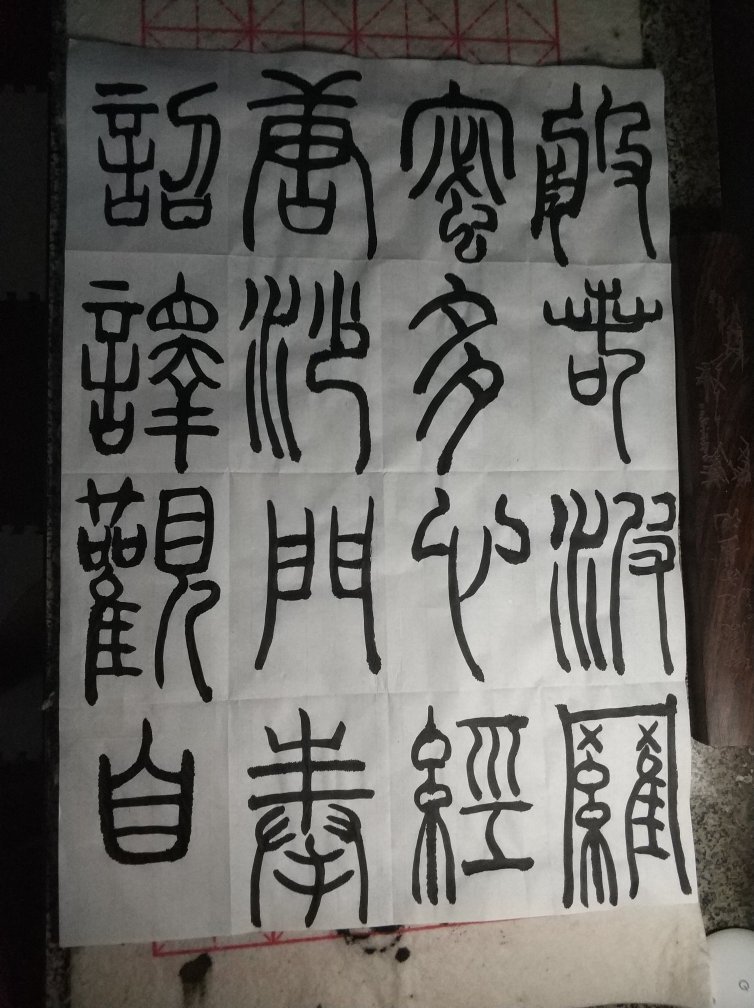 般若波羅
蜜多心經
唐沙門奉
詔譯觀自